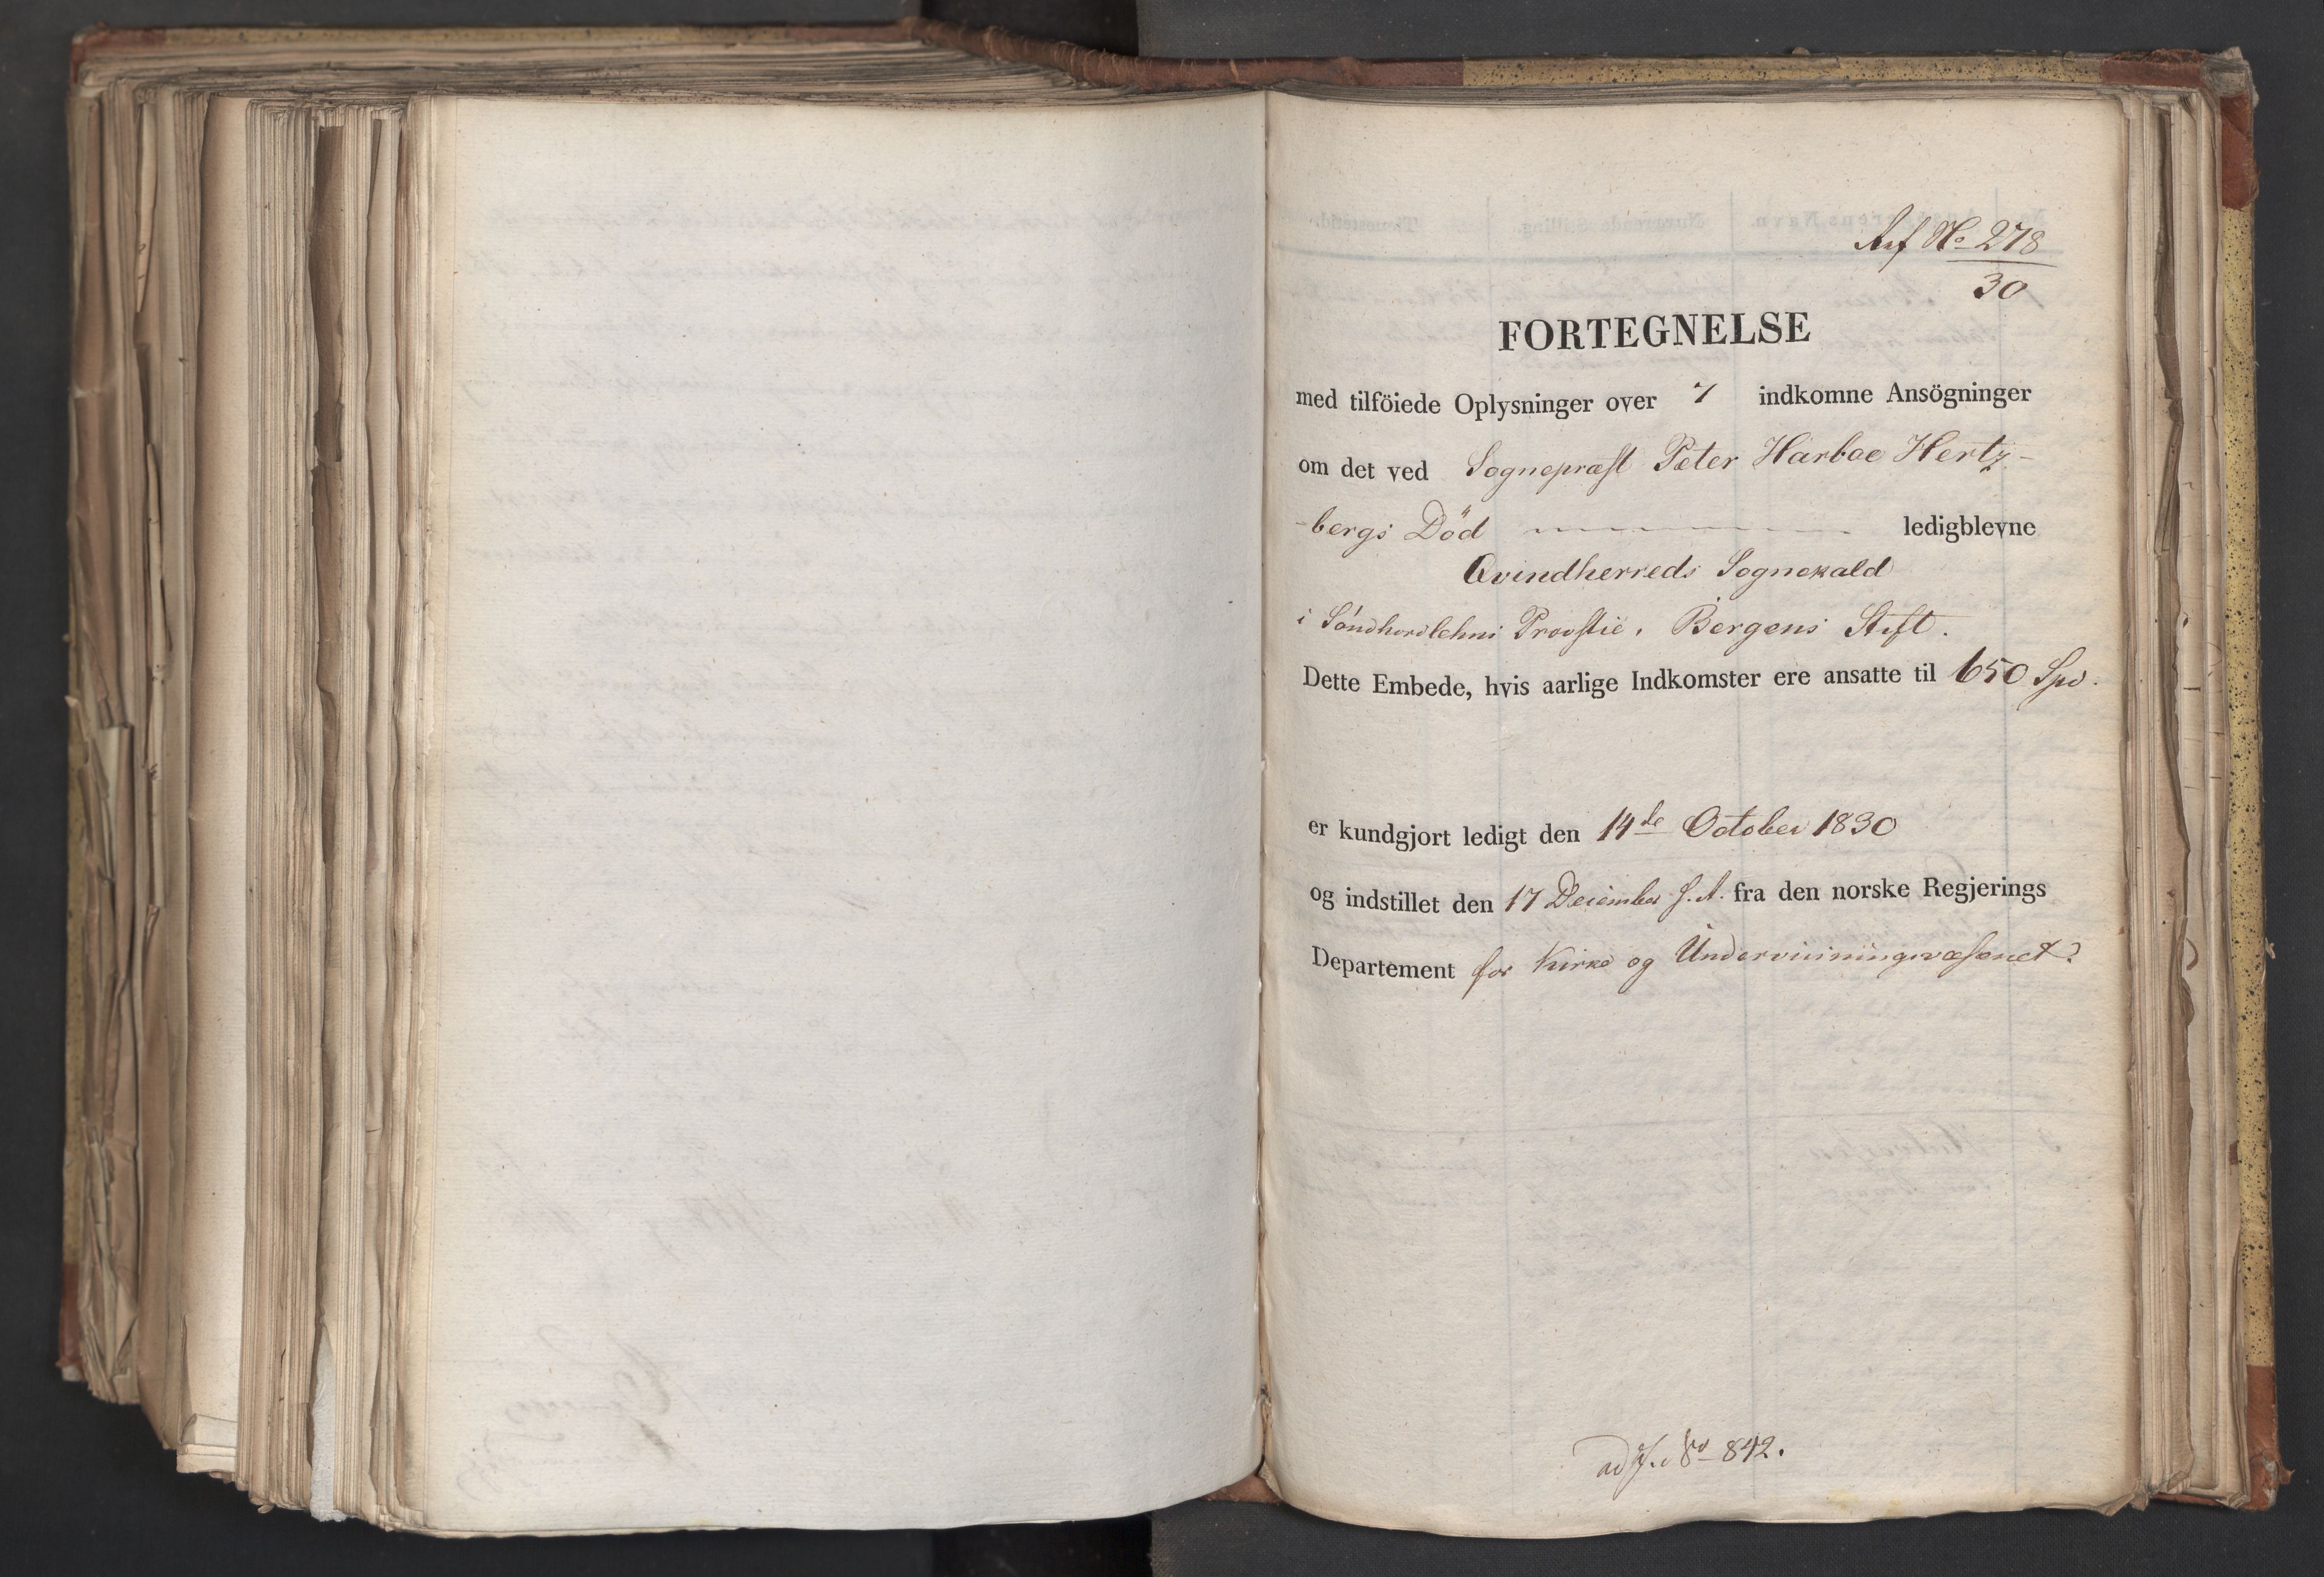 Ref No 278
30
FORTEGNELSE
med tilföiede Oplysninger over 7 indkomne Ansögninger
om det ved Sognepræst Peter Harboe Hertz-
-bergs Död ledigblevne
Qvindherreds Sognekald
i Söndhordlehns Provstie, Bergens Stift.
Dette Embede, hvis aarlige Indkomster ere ansatte til 650 Spd.
er kundgjort ledigt den 14de October 1830
og indstillet den 17 December s. A. fra den norske Regjerings
Departement for Kirke og Underviisningsvæsenet.
ad J. No 842.